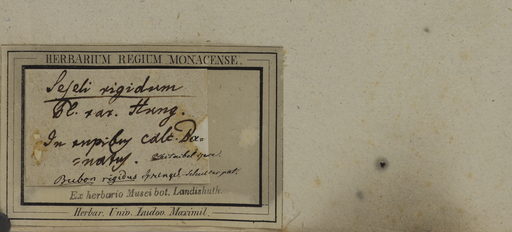 HERBARIUM REGIUM MONACENSE.
Seseli rigidum
Pl. rar. Hung.
In rupibus calc. Ba=
=natus.
Bubon rigidus Sprengel
Ex herbario Musei bot. Landishuth.
Herbar. Univ. Ludov. Maximil.